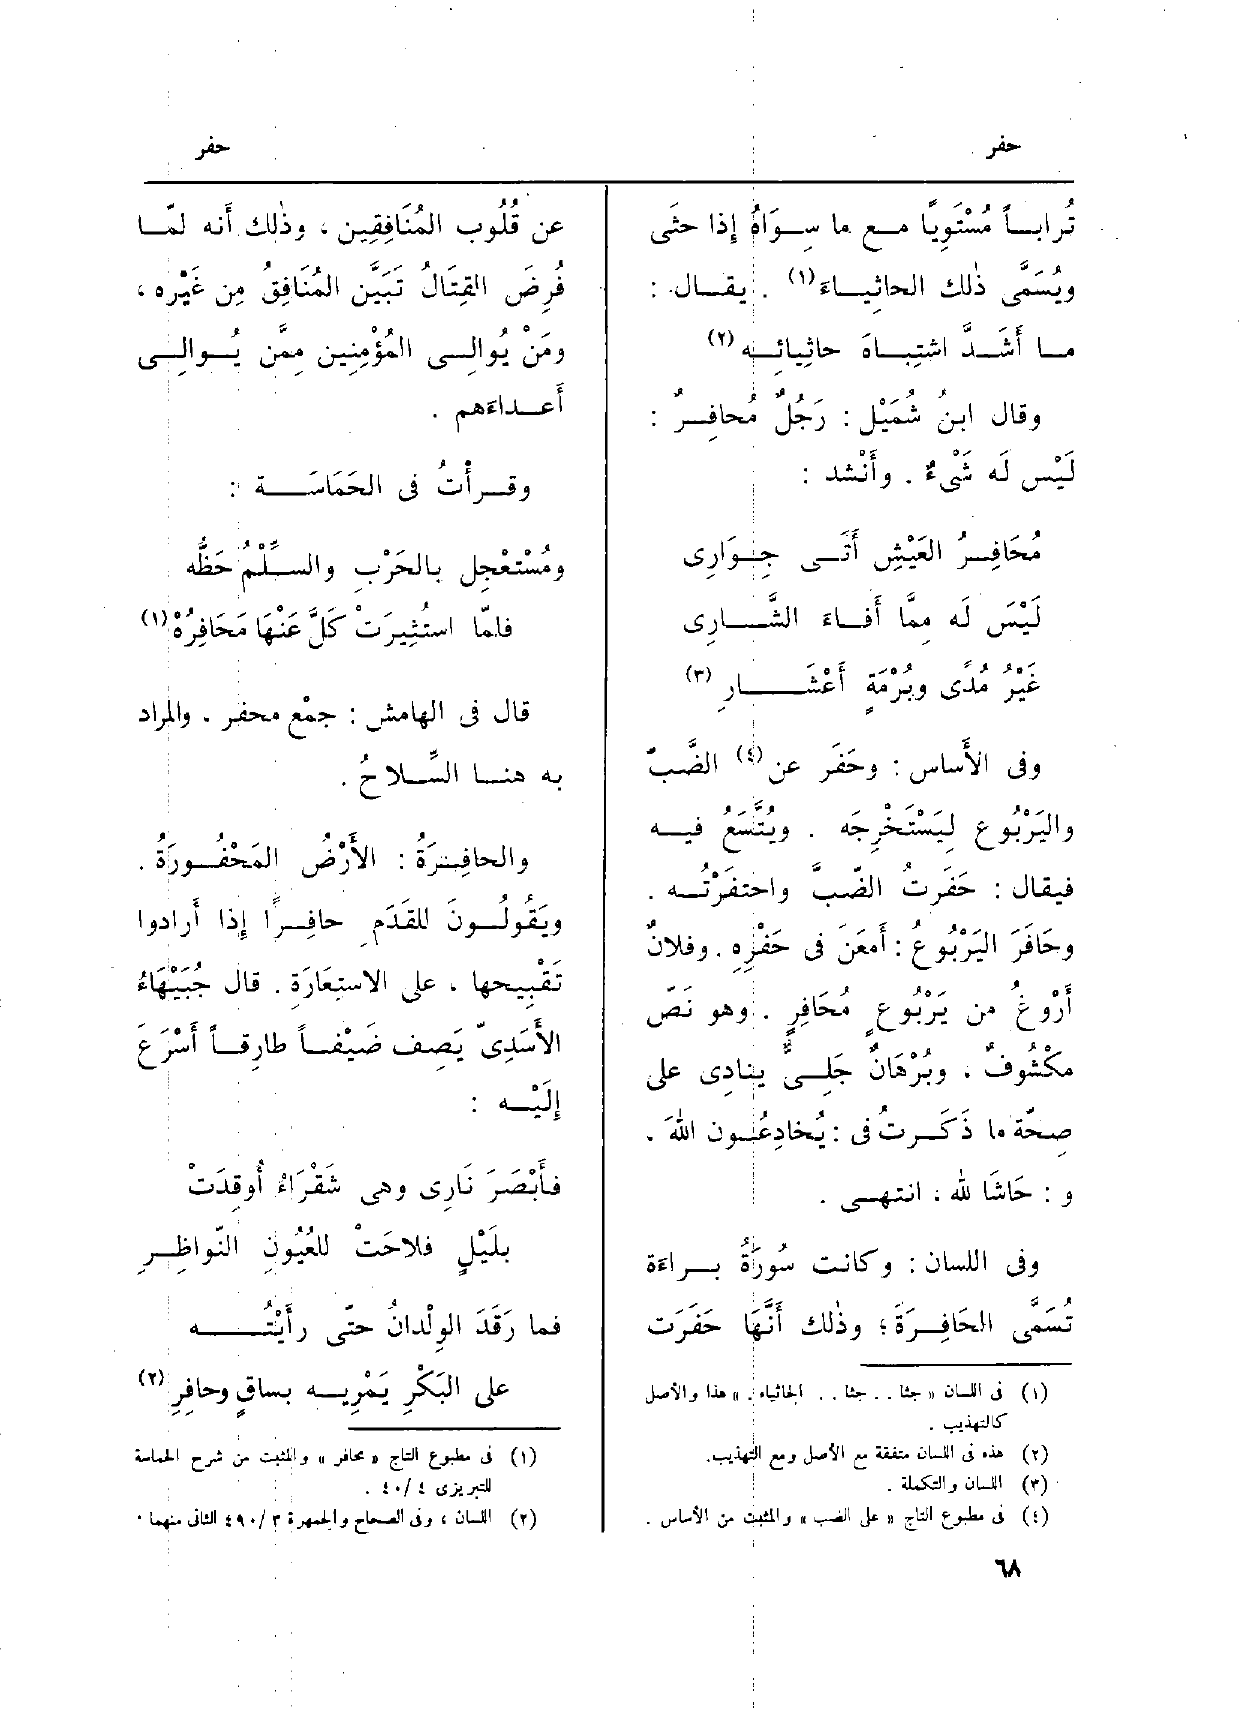 حفر
حفر
تُرابــاً مُسْتَوِيًا مــع ما سِــوَاهُ إذا حثى
ويُسَمَّى ذٰلك الحاثيــاءَ (١) . يقــال :
مــا أَشَــدَّ اشتِبــاهَ حاثِيائِــه (٢)
وقال ابنُ شُمَيْل : رَجُلٌ مُحافِــرٌ :
لَيْس لَه شَىْءٌ . وأَنْشد :
مُحَافِــرُ العَيْشِ أَتَــى جِــوَارِى
لَيْسَ لَه مِمَّا أَفــاءَ الشَّــارِى
غَيْرُ مُدًى وبُرْمَةٍ أَعْشَــــارِ (٣)
وفى الأَساس : وحَفَر عن (٤) الضَّبّ
واليَرْبُوع لِيَسْتَخْرِجَه . ويُتَّسَعُ فيــه
فيقال : حَفَرتُ الضّبَّ واحتفَرْتُــه .
وحَافَرَ اليَرْبُوعُ : أَمعَنَ فى حَفْرِهِ . وفلانٌ
أَرْوغُ من يَرْبُوعٍ مُحَافِرٍ . وهو نَصّ
مكْشُوفٌ ، وبُرْهَانٌ جَلِــىٌّ ينادِى على
صِحّة ما ذَكَــرتُ فى : يُخادِعُــون اللهَ .
و : حَاشَا لله ، انتهــى .
وفى اللسان : وكانت سُورَةُ بــراءَة
تُسَمَّى الحَافِــرَةَ ؛ وذٰلك أَنَّهَا حَفَرَت
(١) فى اللسان « جثا . . جثا . . الجاثياء . » هذا والأصل
كالتهذيب .
(٢) هذه فى اللسان متفقة مع الأصل ومع التهذيب.
(٣) اللسان والتكملة .
(٤) فى مطبوع التاج « على الضب » والمثبت من الأساس .
عن قُلُوب المُنَافِقِين ، وذٰلك أَنه لمّــا
فُرِضَ القِتَالُ تَبَيَّن المُنَافِقُ مِن غَيْرِه ،
ومَنْ يُوالِــى المُؤْمِنِين مِمَّن يُــوالِــى
أَعــداءَهم .
وقــرأْتُ فى الحَمَاسَــــة :
ومُسْتعْجِلٍ بالحَرْبِ والسِّلْمُ حَظُّه
فلمّا استُثِيرَتْ كَلَّ عَنْهَا مَحَافِرُهْ (١)
قال فى الهامش : جمْع محفر ، والمراد
به هنــا السِّــلاحُ .
والحافِــرَةُ : الأَرْضُ المَحْفُــورَةُ .
ويَقُولُــونَ للقَدَمِ حافِــرًا إذا أَرادوا
تَقْبِيحها ، على الاستِعَارَة . قال جُبَيْهَاءُ
الأَسَدِىّ يَصِف ضَيْفــاً طارِقــاً أَسْرَعَ
إلَيْــه :
فــأَبْصَرَ نَارِى وهى شَقْرَاءُ أُوقِدَتْ
بلَيْلٍ فلاحَتْ للعُيُونِ النّواظِــرِ
فما رَقَدَ الوِلْدانُ حتّى رأَيْتُــــه
على البَكْرِ يَمْرِيــه بساقٍ وحافِرِ (٢)
(١) فى مطبوع التاج « محافر » والمثبت من شرح الحماسة
للتبريزى ٤/٤٠ .
(٢) اللسان ، وفى الصحاح والجمهرة ٣/٤٩٠ الثانى منهما .
٦٨